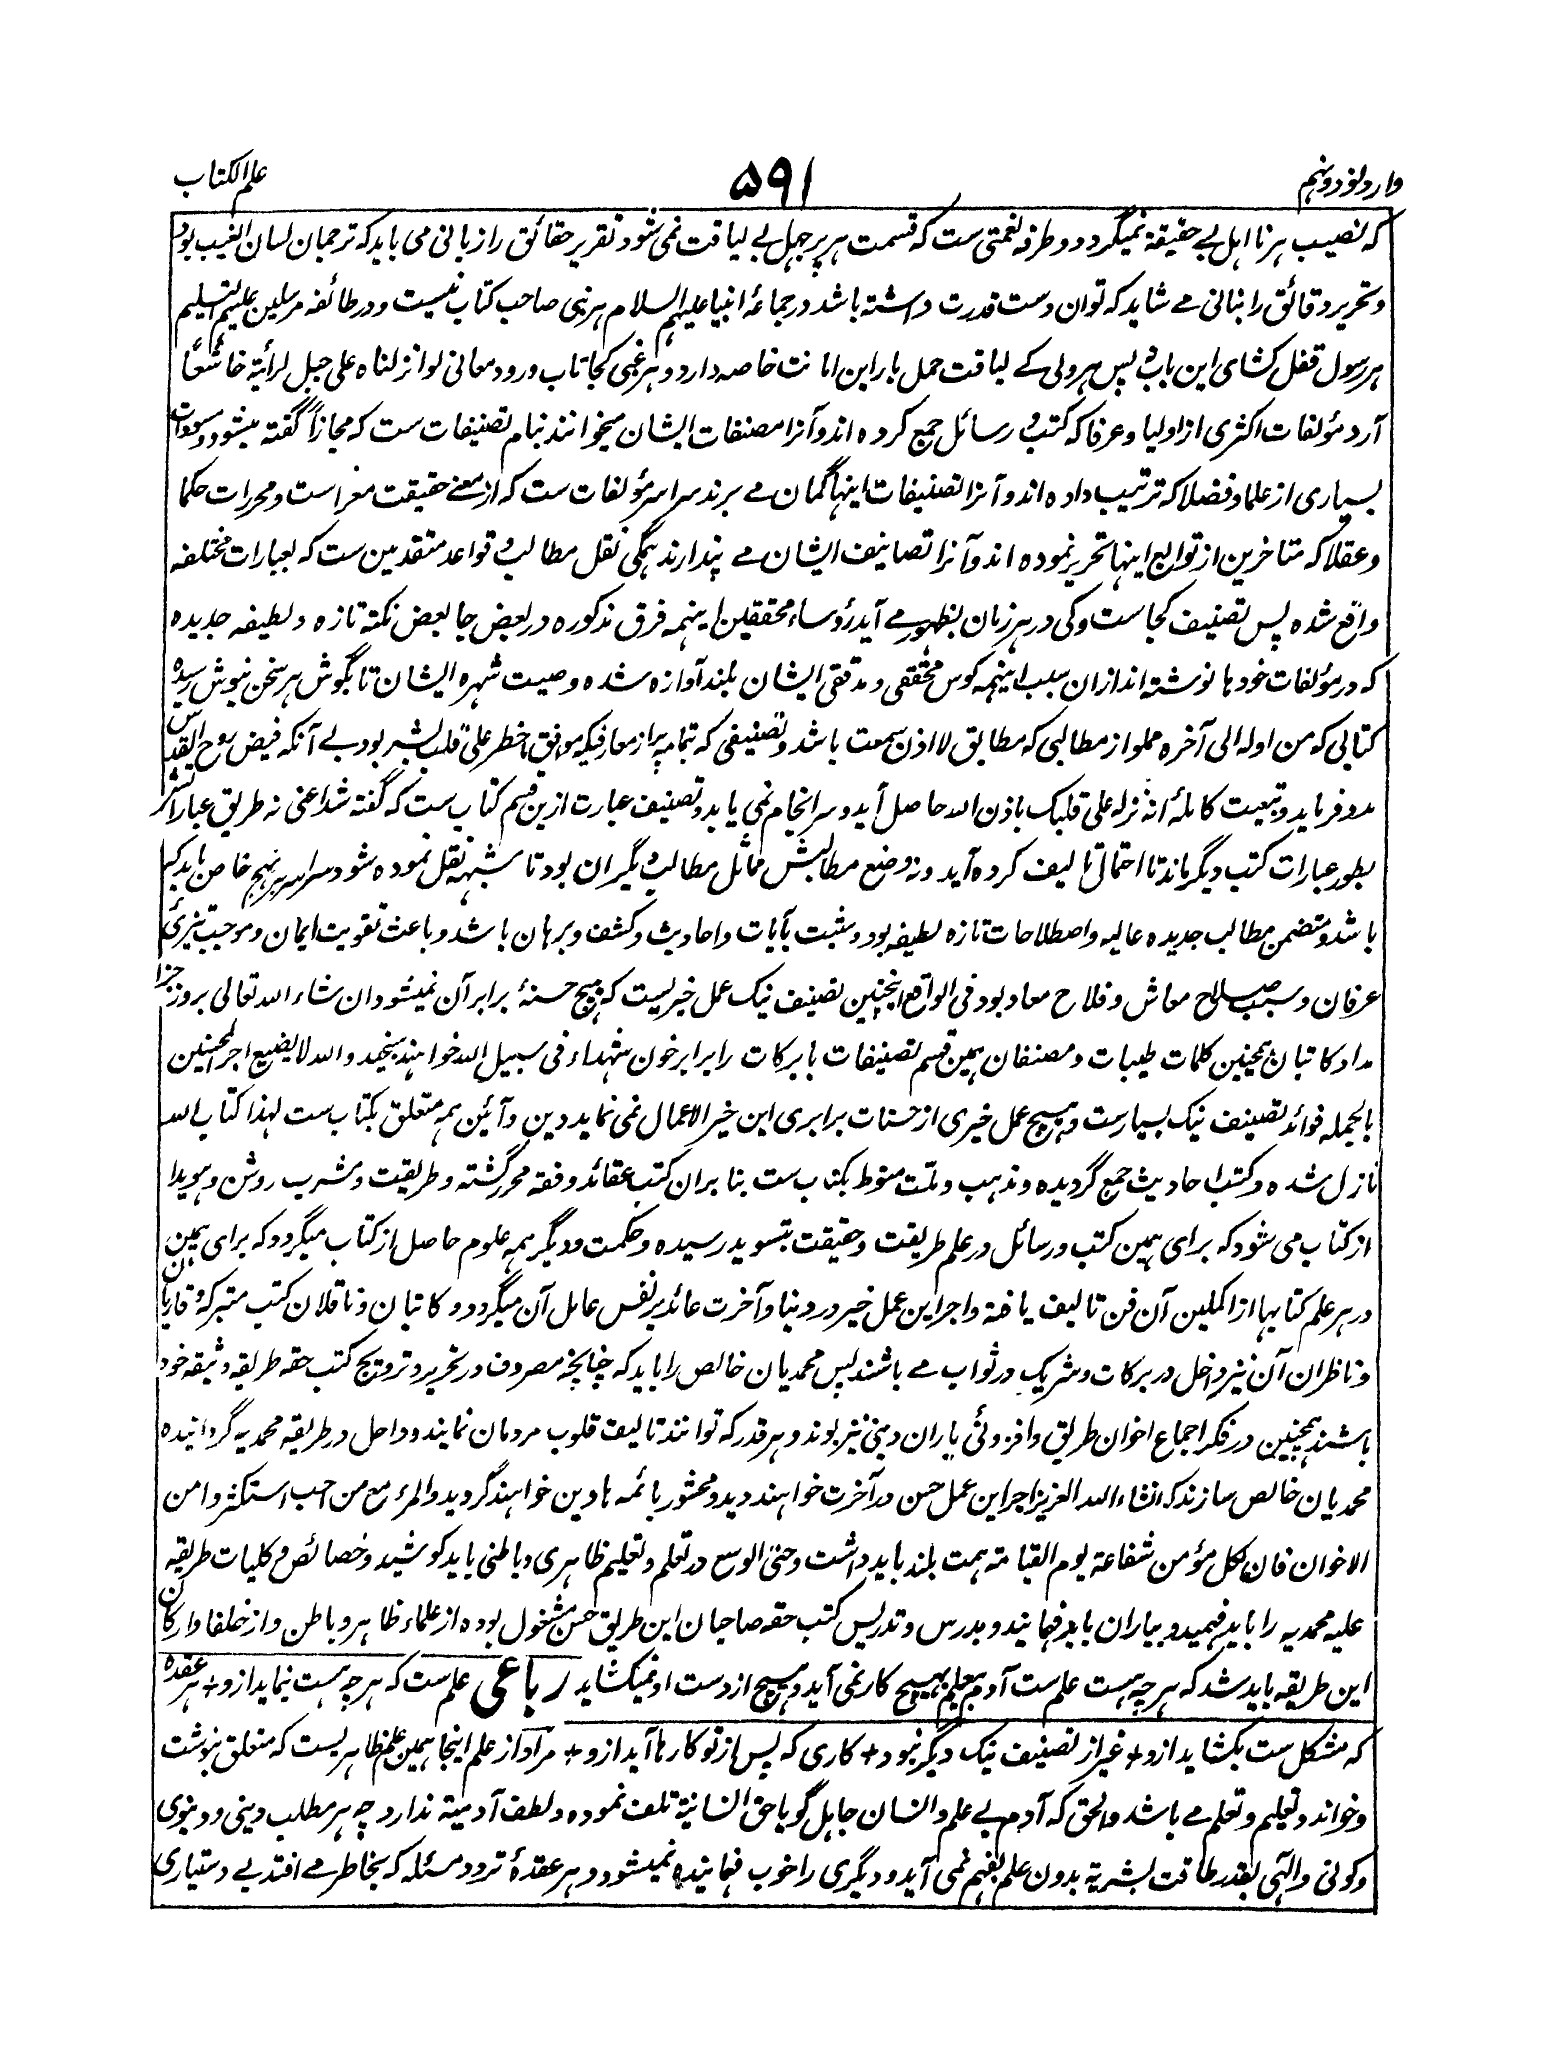 وارد نود و نهم
۵۹۱
علم الکتاب
که نصیب هر نا اهل بے حقیقة نمیگردد و طرفه نعمتی ست که قسمت هر پر جهل بے لیاقت نمی شود تقریر حقائق را زبانی می باید که ترجمان لسان الغیب بود
و تحریر دقائق را بنانی مے شاید که توان دست قدرت داشته باشد در جماعهٔ انبیا علیهم السلام هر نبی صاحب کتاب نیست و در طائفه مرسلین علیهم التسلیم
هر رسول قفل کشای این باب نه پس هر ولی کے لیاقت حمل بار این امانت خاصه دارد و هر غبی کجا تاب ورود معانی لو انزلناه علی جبل لرائیته خاشعًا
آرد مؤلفات اکثری از اولیا و عرفا که کتب و رسائل جمع کرده اند و آنرا مصنفات ایشان میخوانند بنام تصنیفات ست که مجازاً گفته میشود و مسودات
بسیاری از علما و فضلا که ترتیب داده اند و آنرا تصنیفات اینها گمان مے برند سراسر مؤلفات ست که از معنے حقیقت معراست و محررات حکما
و عقلا که متاخرین از توابع اینها تحریر نموده اند و آنرا تصانیف ایشان مے پندارند همگی نقل مطالب و قواعد متقدمین ست که بعبارات مختلفه
واقع شده پس تصنیف کجا ست و کی در هر زمان بظهور مے آید رؤساء محققین اینهمه فرق مذکوره در بعض جا بعض نکته تازه و لطیفه جدیده
که در مؤلفات خودها نوشته اند ازان سبب اینهمه کوس محققی و مدققی ایشان بلند آوازه شده و صیت شهره ایشان تا بگوش هر سخن نیوش رسیده
کتابی که من اوله الی آخره مملو از مطالبی که مطابق لا اذن سمعت باشد و تصنیفی که بتمامه پر از معارفیکه موافق ما خطر علی قلب بشر بود بے آنکه فیض روح القدس
مدد فرماید و تبعیت کاملهٔ انه نزله علی قلبک باذن الله حاصل آید و سرانجام نمی یابد و تصنیف عبارت ازین قسم کتاب ست که گفته شد اعنی نه طریق عباراتش
بطور عبارات کتب دیگر ماند تا احتمال تالیف کرده آید و نه وضع مطالبش مماثل مطالب دیگران بود تا شبهه نقل نموده شود سراسر بر نهج خاص باید که
باشد و متضمن مطالب جدیده عالیه و اصطلاحات تازه لطیفه بود و مثبت بآیات و احادیث و کشف و برهان باشد و باعث تقویت ایمان و موجب
عرفان و سبب صلاح معاش و فلاح معاد بود فی الواقع اینچنین تصنیف نیک عمل خیریست که هیچ حسنهٔ برابر آن نمیشود و ان شاء الله تعالی بروز جزا
مداد کاتبان همچنین کلمات طیبات و مصنفان همین قسم تصنیفات بابرکات را برابر خون شهداء فی سبیل الله خواهند سنجید و الله لا یضیع اجر المحسنین
بالجمله فوائد تصنیف نیک بسیارست و هیچ عمل خیری از حسنات برابری این خیر الاعمال نمی نماید دین و آئین همه متعلق بکتاب ست لهذا کتاب الله
نازل شده و کتب احادیث جمع گردیده و مذهب و ملت منوط بکتاب ست بنا بران کتب عقائد و فقه محرر گشته و طریقت و مشرب روشن و هویدا
از کتاب می شود که برای همین کتب و رسائل در علم طریقت و حقیقت بتسوید رسیده و حکمت و دیگر همه علوم حاصل از کتاب میگردد که برای همین
در هر علم کتابها از اکملین آن فن تالیف یافته و اجر این عمل خیر در دنیا و آخرت عائد بر نفس عامل آن میگردد و کاتبان و ناقلان کتب متبرکه و قاریان
و ناظران آن نیز داخل در برکات و شریک در ثواب مے باشند پس محمدیان خالص را باید که چنانچه مصروف در تحریر و ترویج کتب حقه طریقه وثیقه خود
باشند همچنین در فکر اجماع اخوان طریق و افزونی یاران دینی نیز بوند و هر قدر که توانند تالیف قلوب مردمان نمایند و داخل در طریقه محمدیه گردانیده
محمدیان خالص سازند که انشاء الله العزیز اجر این عمل حسن در آخرت خواهند دید و محشور بائمه هادین خواهند گردید و المرء مع من احب استکثروا من
الاخوان فان لکل مؤمن شفاعة یوم القیامة همت بلند باید داشت و حتی الوسع در تعلم و تعلیم ظاهری و باطنی باید کوشید و خصائص و کلیات طریقه
علیه محمدیه را باید فهمید و بیاران باید فهمانید و بدرس و تدریس کتب حقه صاحبان این طریق حسن مشغول بوده از علماء ظاهر و باطن و از خلفا و ارکان
این طریقه باید شد که هر چه هست علم ست آدم بیعلم بهیچ کار نمی آید و هیچ از دست او نمیکشاید رباعی علم ست که هر چه هست نماید ازو + هر عقده
که مشکل ست بکشاید ازو + غیر از تصنیف نیک دیگر نبود + کاری که پس از تو کارها آید ازو + مراد از علم اینجا همین علم ظاهریست که متعلق بنوشت
و خواند و تعلیم و تعلم مے باشد و الحق که آدم بے علم و انسان جاهل گویا حق انسانیة تلف نموده و لطف آدمیة ندارد چه هر مطلب دینی و دنیوی
و کونی و الٓهی بقدر طاقت بشریة بدون علم بفهم نمی آید و دیگری را خوب فهمانیده نمیشود و هر عقدهٔ تردد مسئله که بخاطر مے افتد بے دستیاری